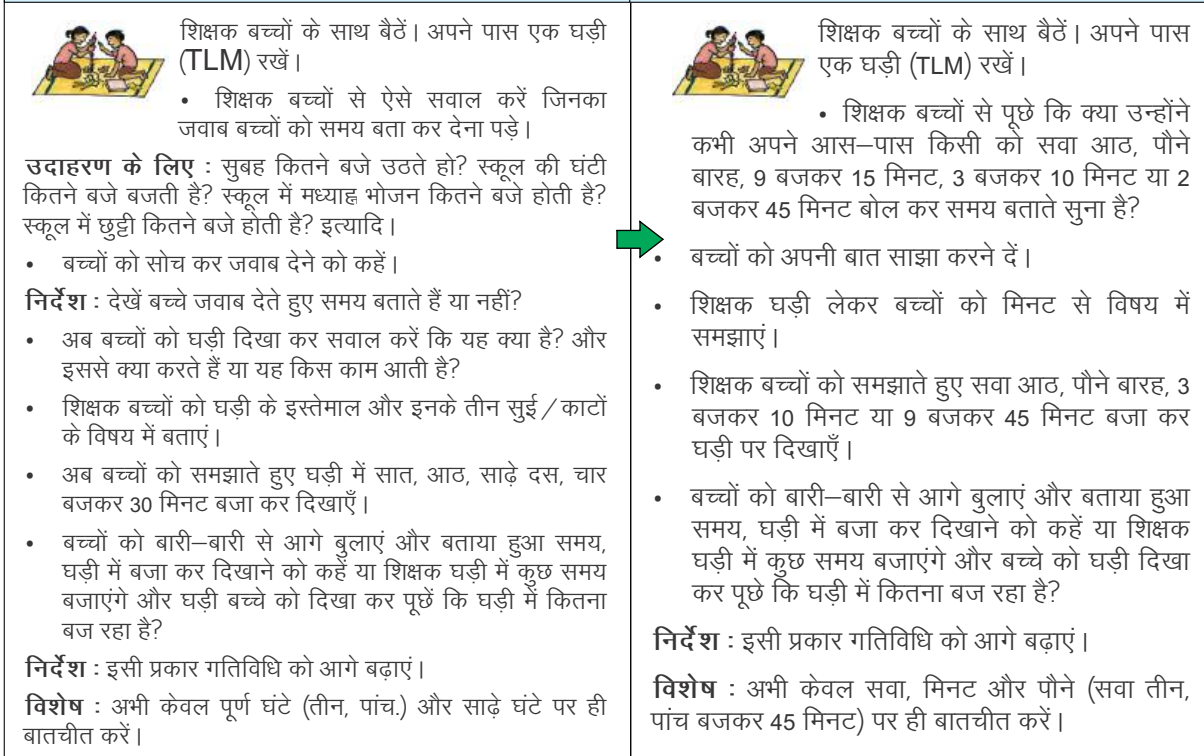 शिक्षक बच्चों के साथ बैठें। अपने पास एक घड़ी
(TLM) रखें।
• शिक्षक बच्चों से ऐसे सवाल करें जिनका
जवाब बच्चों को समय बता कर देना पड़े।
उदाहरण के लिए : सुबह कितने बजे उठते हो? स्कूल की घंटी
कितने बजे बजती है? स्कूल में मध्याह्न भोजन कितने बजे होती है?
स्कूल में छुट्टी कितने बजे होती है? इत्यादि।
• बच्चों को सोच कर जवाब देने को कहें।
निर्देश : देखें बच्चे जवाब देते हुए समय बताते हैं या नहीं?
• अब बच्चों को घड़ी दिखा कर सवाल करें कि यह क्या है? और
इससे क्या करते हैं या यह किस काम आती है?
• शिक्षक बच्चों को घड़ी के इस्तेमाल और इनके तीन सुई/काटों
के विषय में बताएं।
• अब बच्चों को समझाते हुए घड़ी में सात, आठ, साढ़े दस, चार
बजकर 30 मिनट बजा कर दिखाएँ।
• बच्चों को बारी–बारी से आगे बुलाएं और बताया हुआ समय,
घड़ी में बजा कर दिखाने को कहें या शिक्षक घड़ी में कुछ समय
बजाएंगे और घड़ी बच्चे को दिखा कर पूछें कि घड़ी में कितना
बज रहा है?
निर्देश : इसी प्रकार गतिविधि को आगे बढ़ाएं।
विशेष : अभी केवल पूर्ण घंटे (तीन, पांच.) और साढ़े घंटे पर ही
बातचीत करें।
शिक्षक बच्चों के साथ बैठें। अपने पास
एक घड़ी (TLM) रखें।
• शिक्षक बच्चों से पूछे कि क्या उन्होंने
कभी अपने आस–पास किसी को सवा आठ, पौने
बारह, 9 बजकर 15 मिनट, 3 बजकर 10 मिनट या 2
बजकर 45 मिनट बोल कर समय बताते सुना है?
• बच्चों को अपनी बात साझा करने दें।
• शिक्षक घड़ी लेकर बच्चों को मिनट से विषय में
समझाएं।
• शिक्षक बच्चों को समझाते हुए सवा आठ, पौने बारह, 3
बजकर 10 मिनट या 9 बजकर 45 मिनट बजा कर
घड़ी पर दिखाएँ।
• बच्चों को बारी–बारी से आगे बुलाएं और बताया हुआ
समय, घड़ी में बजा कर दिखाने को कहें या शिक्षक
घड़ी में कुछ समय बजाएंगे और बच्चे को घड़ी दिखा
कर पूछे कि घड़ी में कितना बज रहा है?
निर्देश : इसी प्रकार गतिविधि को आगे बढ़ाएं।
विशेष : अभी केवल सवा, मिनट और पौने (सवा तीन,
पांच बजकर 45 मिनट) पर ही बातचीत करें।